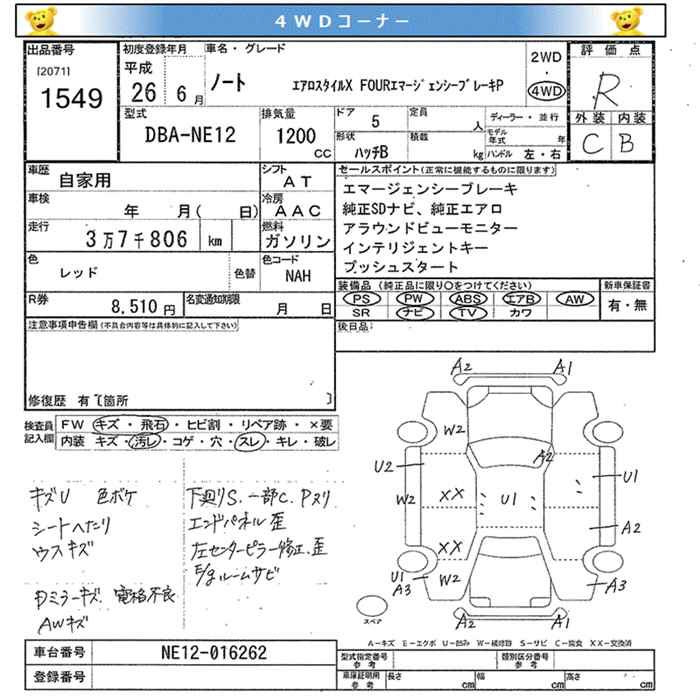 4WDコーナー
出品番号
[2071]
1549
初度登録年月
平成
26 6 月
車名・グレード
ノート
エアロスタイルX FOURエマージェンシーブレーキP
2WD
・
4WD
評価点
R
外装 内装
C B
型式
DBA-NE12
排気量
1200
CC
ドア
5
定員
人
形状
ハッチB
積載
kg
ディーラー・並行
モデル年式
年
ハンドル 左・右
車歴
自家用
シフト
AT
車検
年 月( 日)
冷房
AAC
走行
3万7千806 km
燃料
ガソリン
色
レッド
色替
色コード
NAH
R券
8,510 円
名変通知期限
月 日
セールスポイント(正常に機能するものに限ります)
エマージェンシーブレーキ
純正SDナビ、純正エアロ
アラウンドビューモニター
インテリジェントキー
プッシュスタート
装備品 (純正品に限り○をつけてください)
PS PW ABS エアB AW
SR ナビ TV カワ
新車保証書
有・無
後日品:
注意事項申告欄(不具合内容等は具体的に記入して下さい)
修復歴 有〔箇所 〕
検査員
記入欄
FW キズ・飛石・ヒビ割・リペア跡・×要
内装 キズ・汚レ・コゲ・穴・スレ・キレ・破レ
キズU 色ボケ
シートヘタリ
ウスキズ
Dミラーキズ 電格不良
AWキズ
下廻りS.一部C.Pヌリ
エンドパネル歪
左センターピラー修正.歪
E/gルームサビ
A2 A1
W2
A2
U2
U1
W2
XX
U1
A2
XX
U1
A3
W2
A3
A2 A1
スペア
A-キズ E-エクボ U-凹み W-補修跡 S-サビ C-腐食 XX-交換済
車台番号
NE12-016262
登録番号
型式指定番号
参考
類別区分番号
参考
車庫証明用
参考
長さ cm
幅 cm
高さ cm